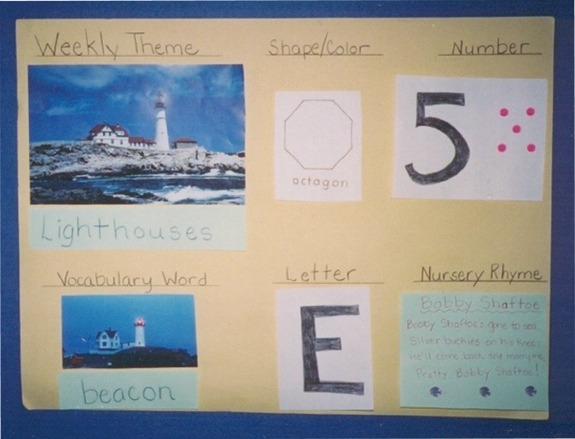 Weekly Theme
Lighthouses
Shape/Color
octagon
Number
5
Vocabulary Word
beacon
Letter
E
Nursery Rhyme
Bobby Shaftoe
Bobby Shaftoe's gone to sea
Silver buckles on his knee;
He'll come back and marry me,
Pretty Bobby Shaftoe!